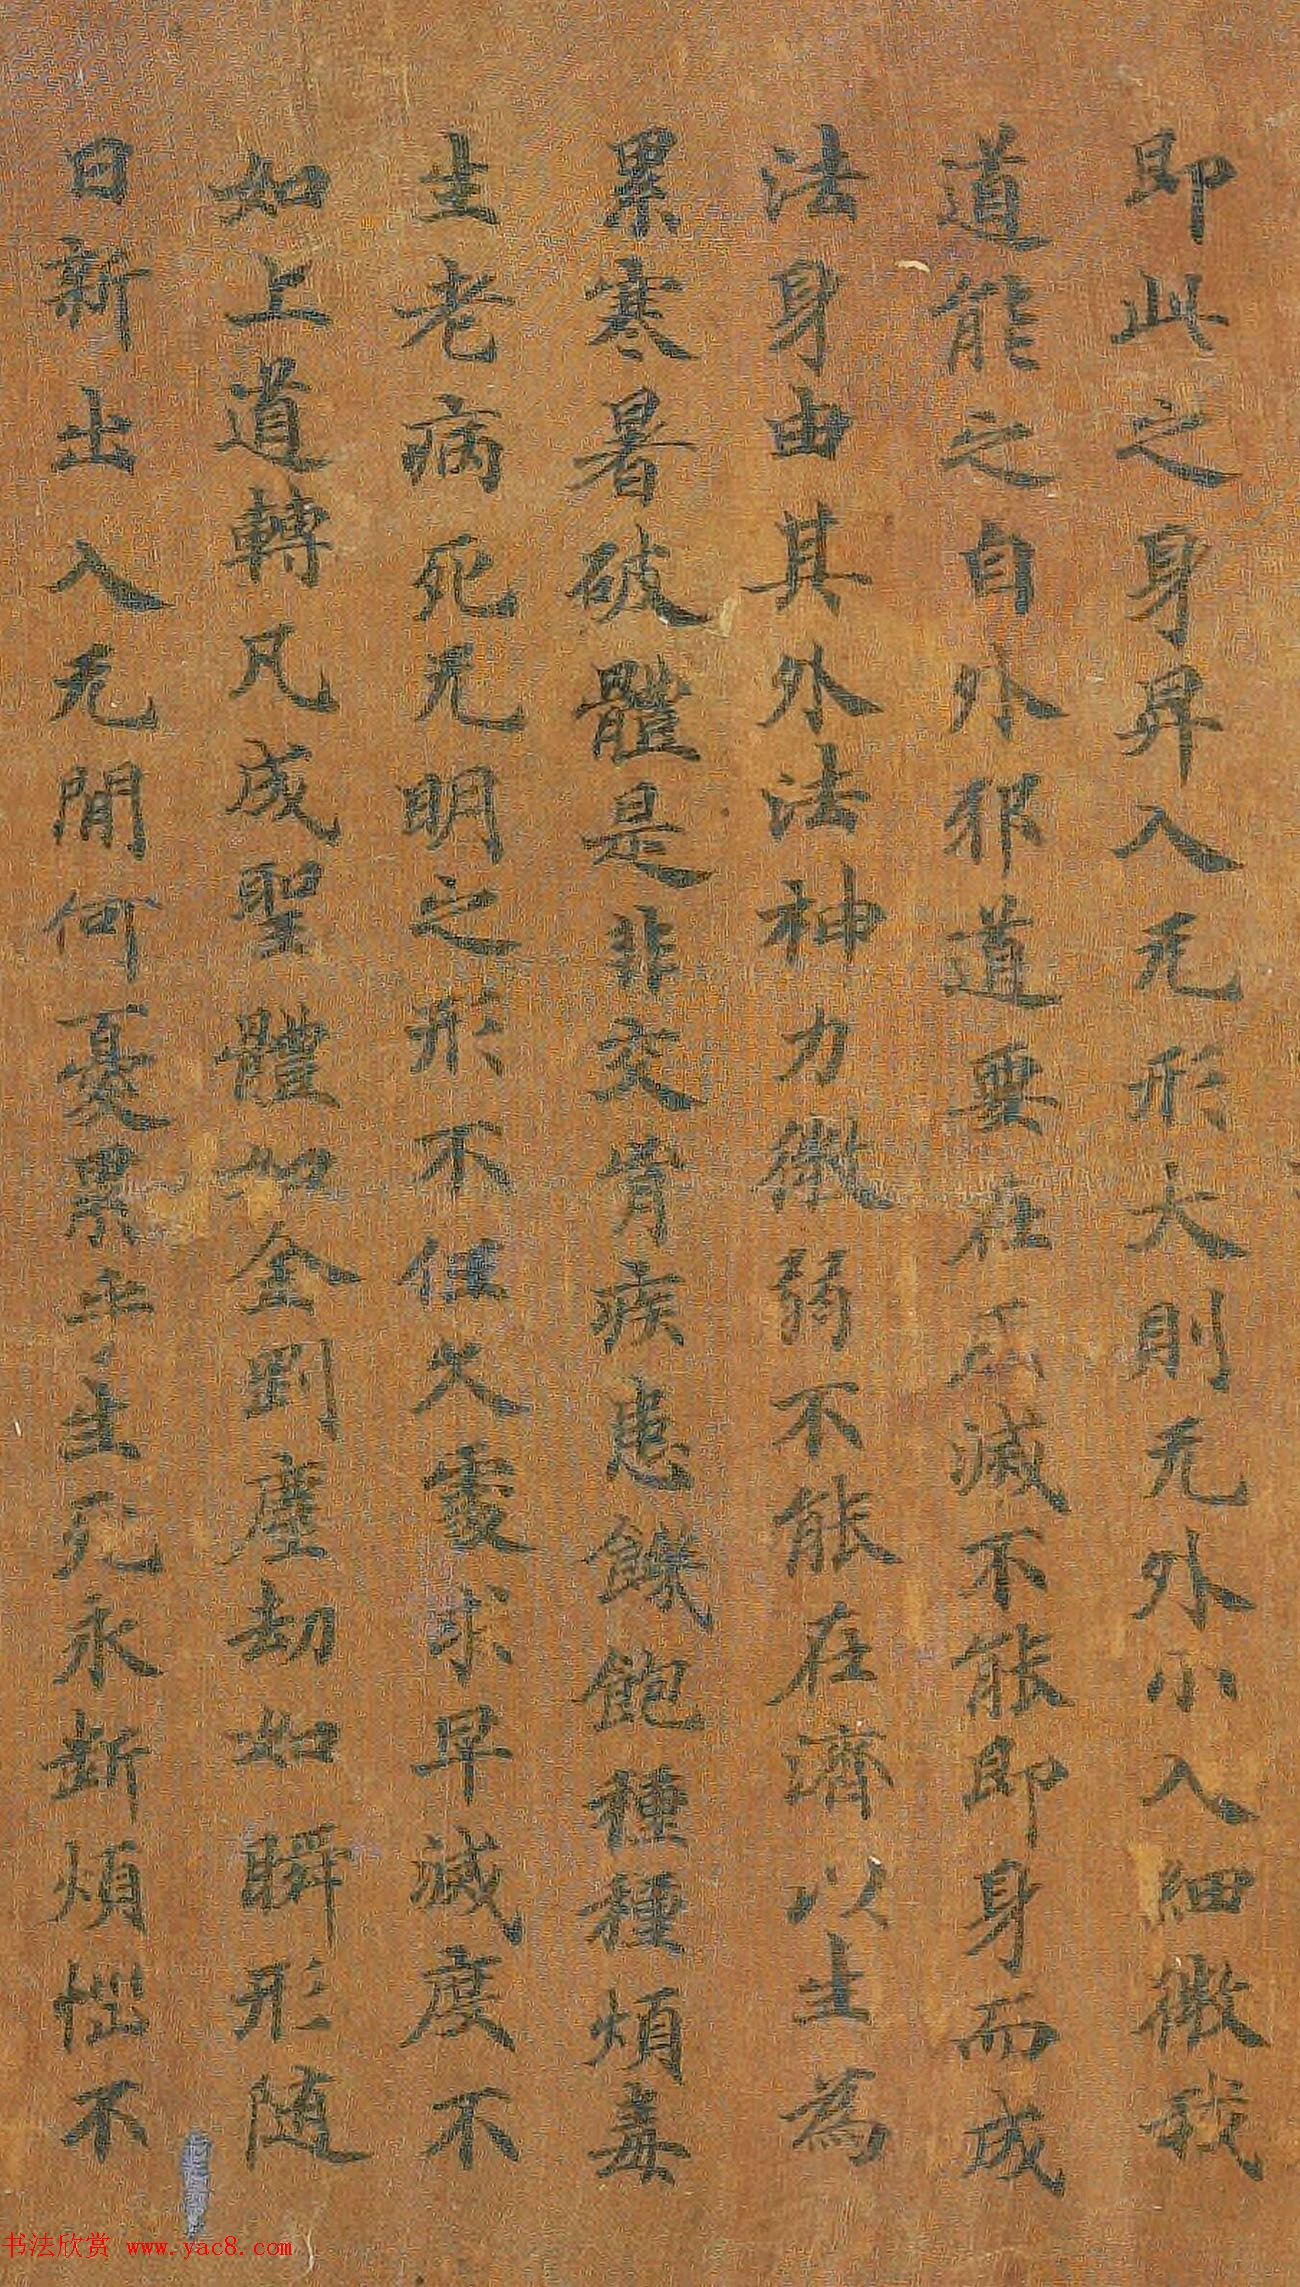 即此之身昇入无形大則无外小入細微我
道能之自外邪道要在不滅不能即身而成
法身由其外法神力微弱不能在濟以生為
累寒暑破體是非交胷疾患飢飽種種煩毒
生老病死无明之形不任久處求早滅度不
如上道轉凡成聖體如金剛塵劫如瞬形随
日新出入无間何憂累乎生死永斷煩惱不
书法欣赏 www.yac8.com